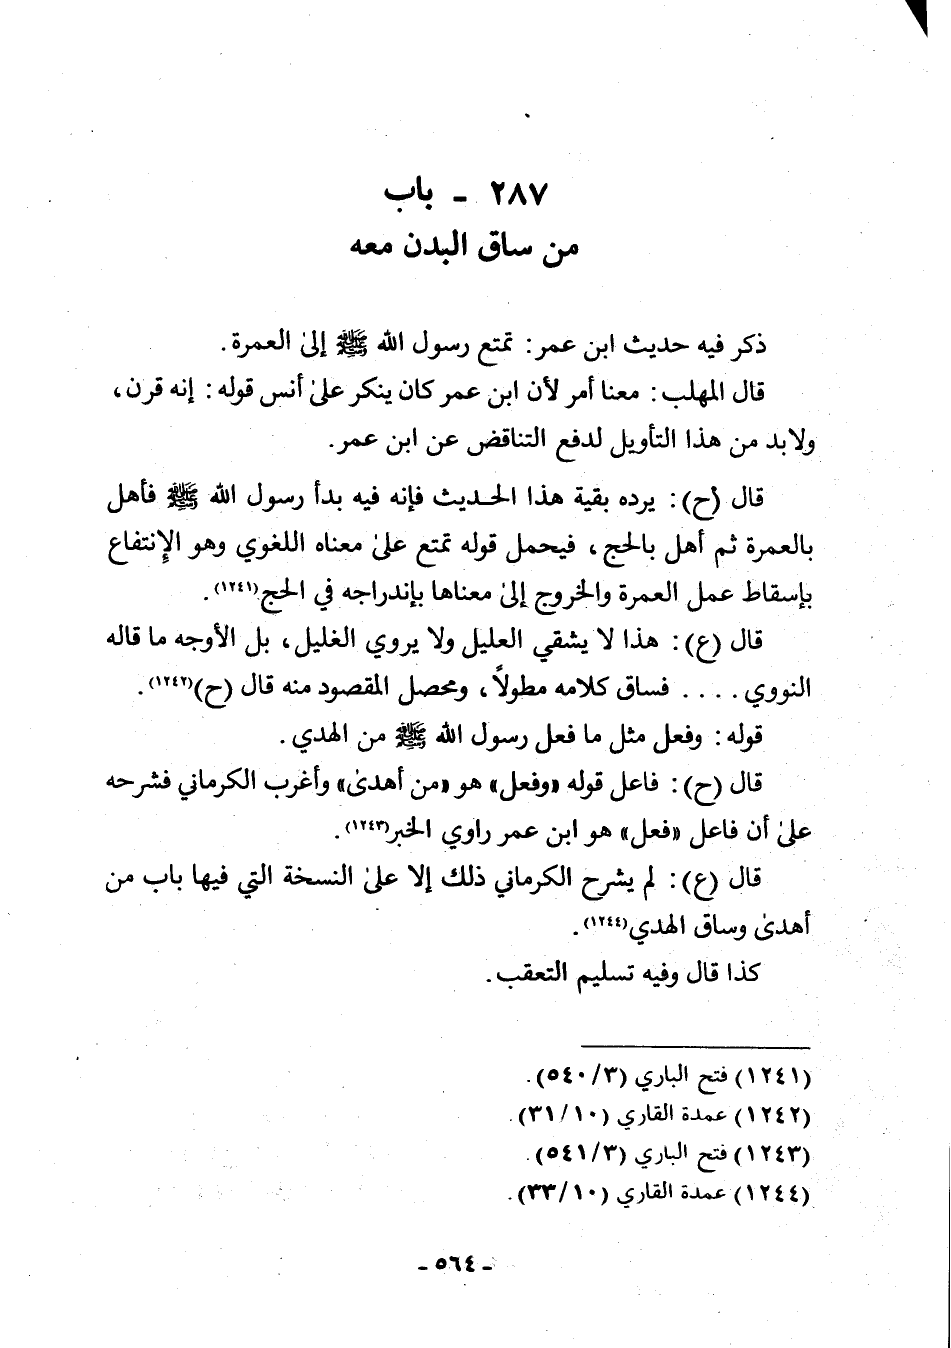 ٢٨٧ ـ باب
من ساق البدن معه
ذكر فيه حديث ابن عمر: تمتع رسول الله ﷺ إلىٰ العمرة.
قال المهلب: معنا أمر لأن ابن عمر كان ينكر علىٰ أنس قوله: إنه قرن،
ولابد من هذا التأويل لدفع التناقض عن ابن عمر.
قال (ح): يرده بقية هذا الحديث فإنه فيه بدأ رسول الله ﷺ فأهل
بالعمرة ثم أهل بالحج، فيحمل قوله تمتع علىٰ معناه اللغوي وهو الإنتفاع
بإسقاط عمل العمرة والخروج إلىٰ معناها بإندراجه في الحج(١٢٤١).
قال (ع): هذا لا يشقي العليل ولا يروي الغليل، بل الأوجه ما قاله
النووي.... فساق كلامه مطولاً، ومحصل المقصود منه قال (ح)(١٢٤٢).
قوله: وفعل مثل ما فعل رسول الله ﷺ من الهدي.
قال (ح): فاعل قوله «وفعل» هو «من أهدىٰ» وأغرب الكرماني فشرحه
علىٰ أن فاعل «فعل» هو ابن عمر راوي الخبر(١٢٤٣).
قال (ع): لم يشرح الكرماني ذلك إلا علىٰ النسخة التي فيها باب من
أهدىٰ وساق الهدي(١٢٤٤).
كذا قال وفيه تسليم التعقب.
(١٢٤١) فتح الباري (٣/ ٥٤٠).
(١٢٤٢) عمدة القاري (١٠/ ٣١).
(١٢٤٣) فتح الباري (٣/ ٥٤١).
(١٢٤٤) عمدة القاري (١٠/ ٣٣).
ـ ٥٦٤ ـ